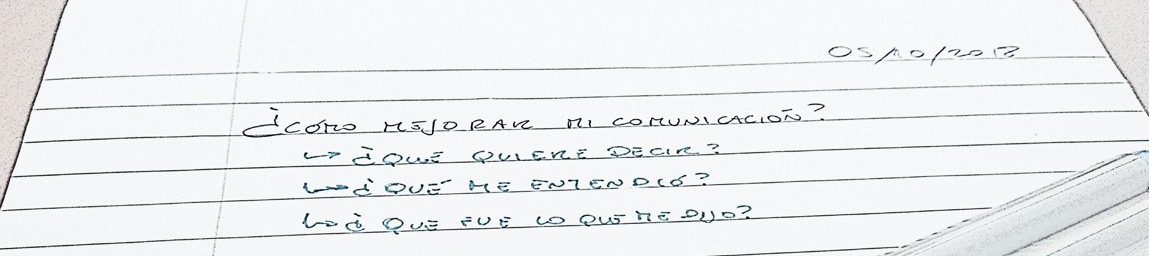 05/10/2013
¿CÓMO MEJORAR MI COMUNICACIÓN?
↳ ¿QUÉ QUIERE DECIR?
↳ ¿QUÉ ME ENTENDIÓ?
↳ ¿QUE FUE LO QUE ME DIJO?